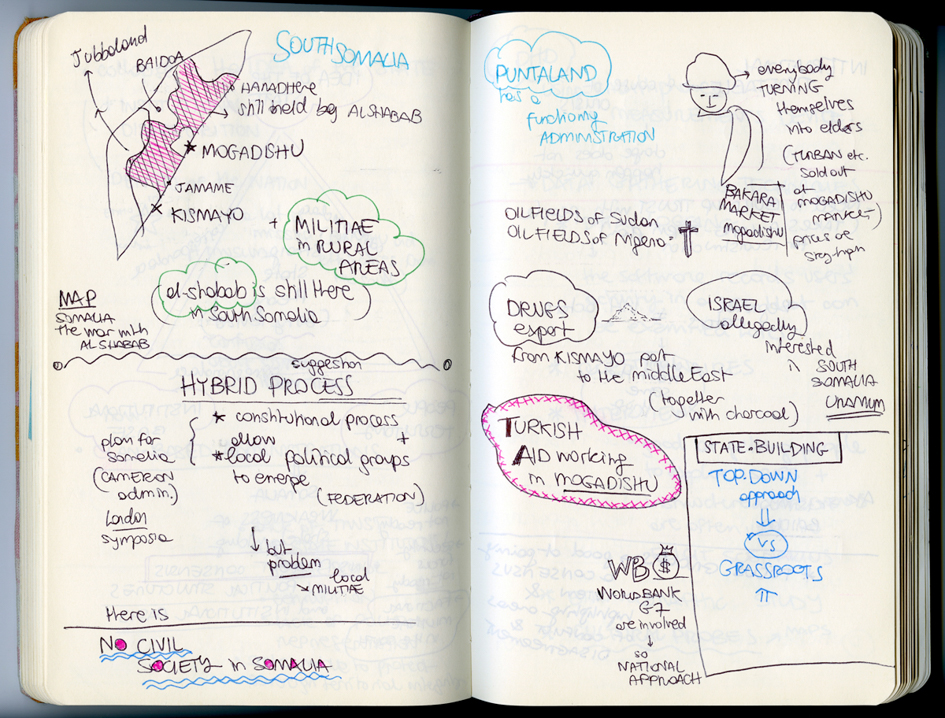 SOUTH SOMALIA
Jubbaland
BAIDOA
HARADHERE
still held by AL SHABAB
MOGADISHU
JAMAME
KISMAYO
+ MILITIAE
in RURAL
AREAS
al-shabab is still here
in South Somalia
MAP
SOMALIA
the war with
AL SHABAB
suggestion
HYBRID PROCESS
plan for
Somalia
(CAMERON
admin.)
London
symposia
* constitutional process
allow +
* local political groups
to emerge
(FEDERATION)
↓ but
problem
local
MILITIAE
Here is
NO CIVIL
SOCIETY in SOMALIA
PUNTALAND
has a
functioning
ADMINISTRATION
→ everybody
TURNING
themselves
into elders
(TURBAN etc.
sold out
at
MOGADISHU
MARKET)
prices are
BAKARA
MARKET
Mogadishu
OILFIELDS of Sudan
OILFIELDS of
DRUGS
export
from KISMAYO port
to the middle East
(together
with charcoal)
ISRAEL
allegedly
interested
in SOUTH
SOMALIA
URANIUM
TURKISH
AID working
in MOGADISHU
WB $
WORLD BANK
G7
are involved
↓
so
NATIONAL
APPROACH
STATE-BUILDING
TOP-DOWN
approach
⇓
VS
GRASSROOTS
⇑